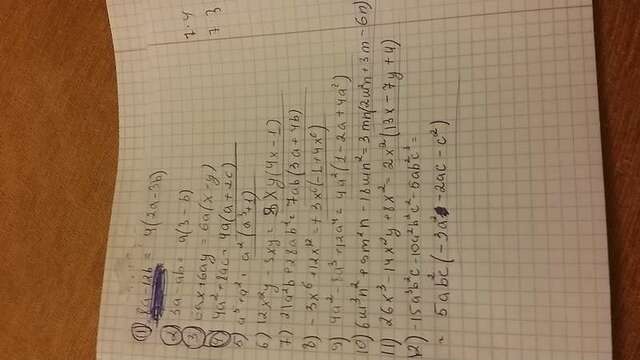 1) 8a - 12b = 4(2a - 3b)
2) 3a - ab = a(3 - b)
3) 6ax + 6ay = 6a(x - y)
4) 4a² + 8ac = 4a(a + 2c)
5) a⁵ + a² = a²(a³ + 1)
6) 12x²y - 3xy = 3xy(4x - 1)
7) 21a²b + 28ab² = 7ab(3a + 4b)
8) -3x⁶ + 12x¹² = 3x⁶(-1 + 4x⁶)
9) 4a² - 8a³ + 12a⁴ = 4a²(1 - 2a + 4a²)
10) 6m³n² + 9m²n - 18mn² = 3mn(2m²n + 3m - 6n)
11) 26x³ - 14x²y + 8x² = 2x²(13x - 7y + 4)
12) -15a³b²c - 10a²b²c² - 5ab²c³ =
= 5ab²c(-3a² - 2ac - c²)
7·4
7·3